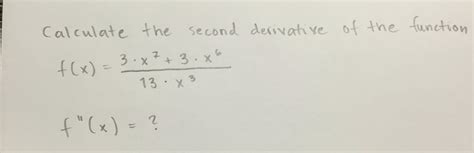 Calculate the second derivative of the function
f(x) = \frac{3 \cdot x^7 + 3 \cdot x^6}{13 \cdot x^3}
f''(x) = ?